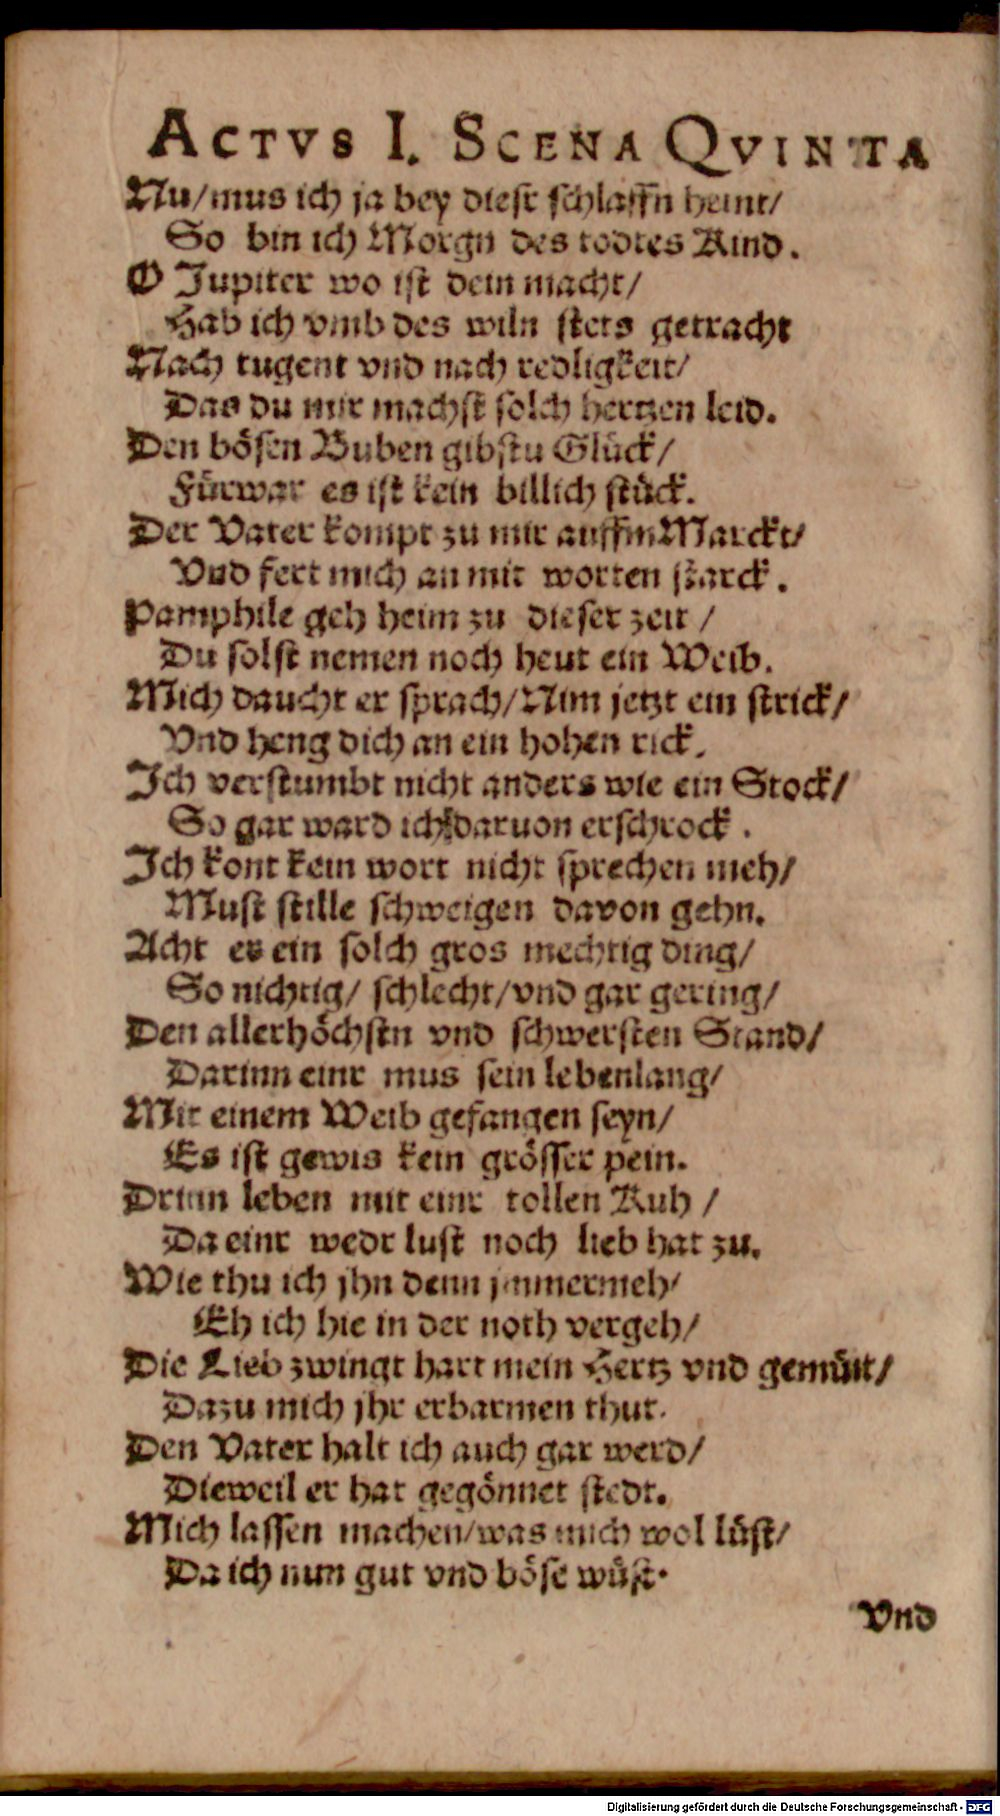 ACTVS I. SCENA QVINTA
Nu/mus ich ja bey diesr schlaffn heint/
So bin ich Morgn des todtes Kind.
O Jupiter wo ist dein macht/
Hab ich vmb des wiln stets getracht
Nach tugent vnd nach redligkeit/
Das du mir machst solch hertzen leid.
Den bösen Buben gibstu Glück/
Fürwar es ist kein billich stück.
Der Vater kompt zu mir auffm Marckt/
Vnd fert mich an mit worten starck.
Pamphile geh heim zu dieser zeit /
Du solst nemen noch heut ein Weib.
Mich daucht er sprach/Nim jetzt ein strick/
Vnd heng dich an ein hohen rick.
Ich verstumbt nicht anders wie ein Stock/
So gar ward ich daruon erschrock .
Ich kont kein wort nicht sprechen meh/
Must stille schweigen davon gehn.
Acht es ein solch gros mechtig ding/
So nichtig/ schlecht/vnd gar gering/
Den allerhöchstn vnd schwersten Stand/
Darinn einr mus sein lebenlang/
Mit einem Weib gefangen seyn/
Es ist gewis kein grösser pein.
Drinn leben mit einr tollen Kuh /
Da einr wedr lust noch lieb hat zu.
Wie thu ich jhn denn jmmermeh/
Eh ich hie in der noth vergeh/
Die Lieb zwingt hart mein Hertz vnd gemüt/
Dazu mich jhr erbarmen thut.
Den Vater halt ich auch gar werd/
Dieweil er hat gegönnet stedt.
Mich lassen machen/was mich wol lüst/
Da ich nun gut vnd böse wüst.
Vnd
Digitalisierung gefördert durch die Deutsche Forschungsgemeinschaft - DFG